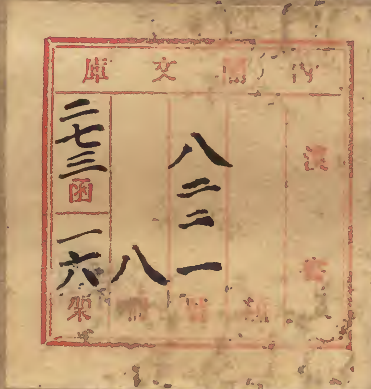 内閣文庫
漢書
八二二一號
八冊
二七三函
一六架